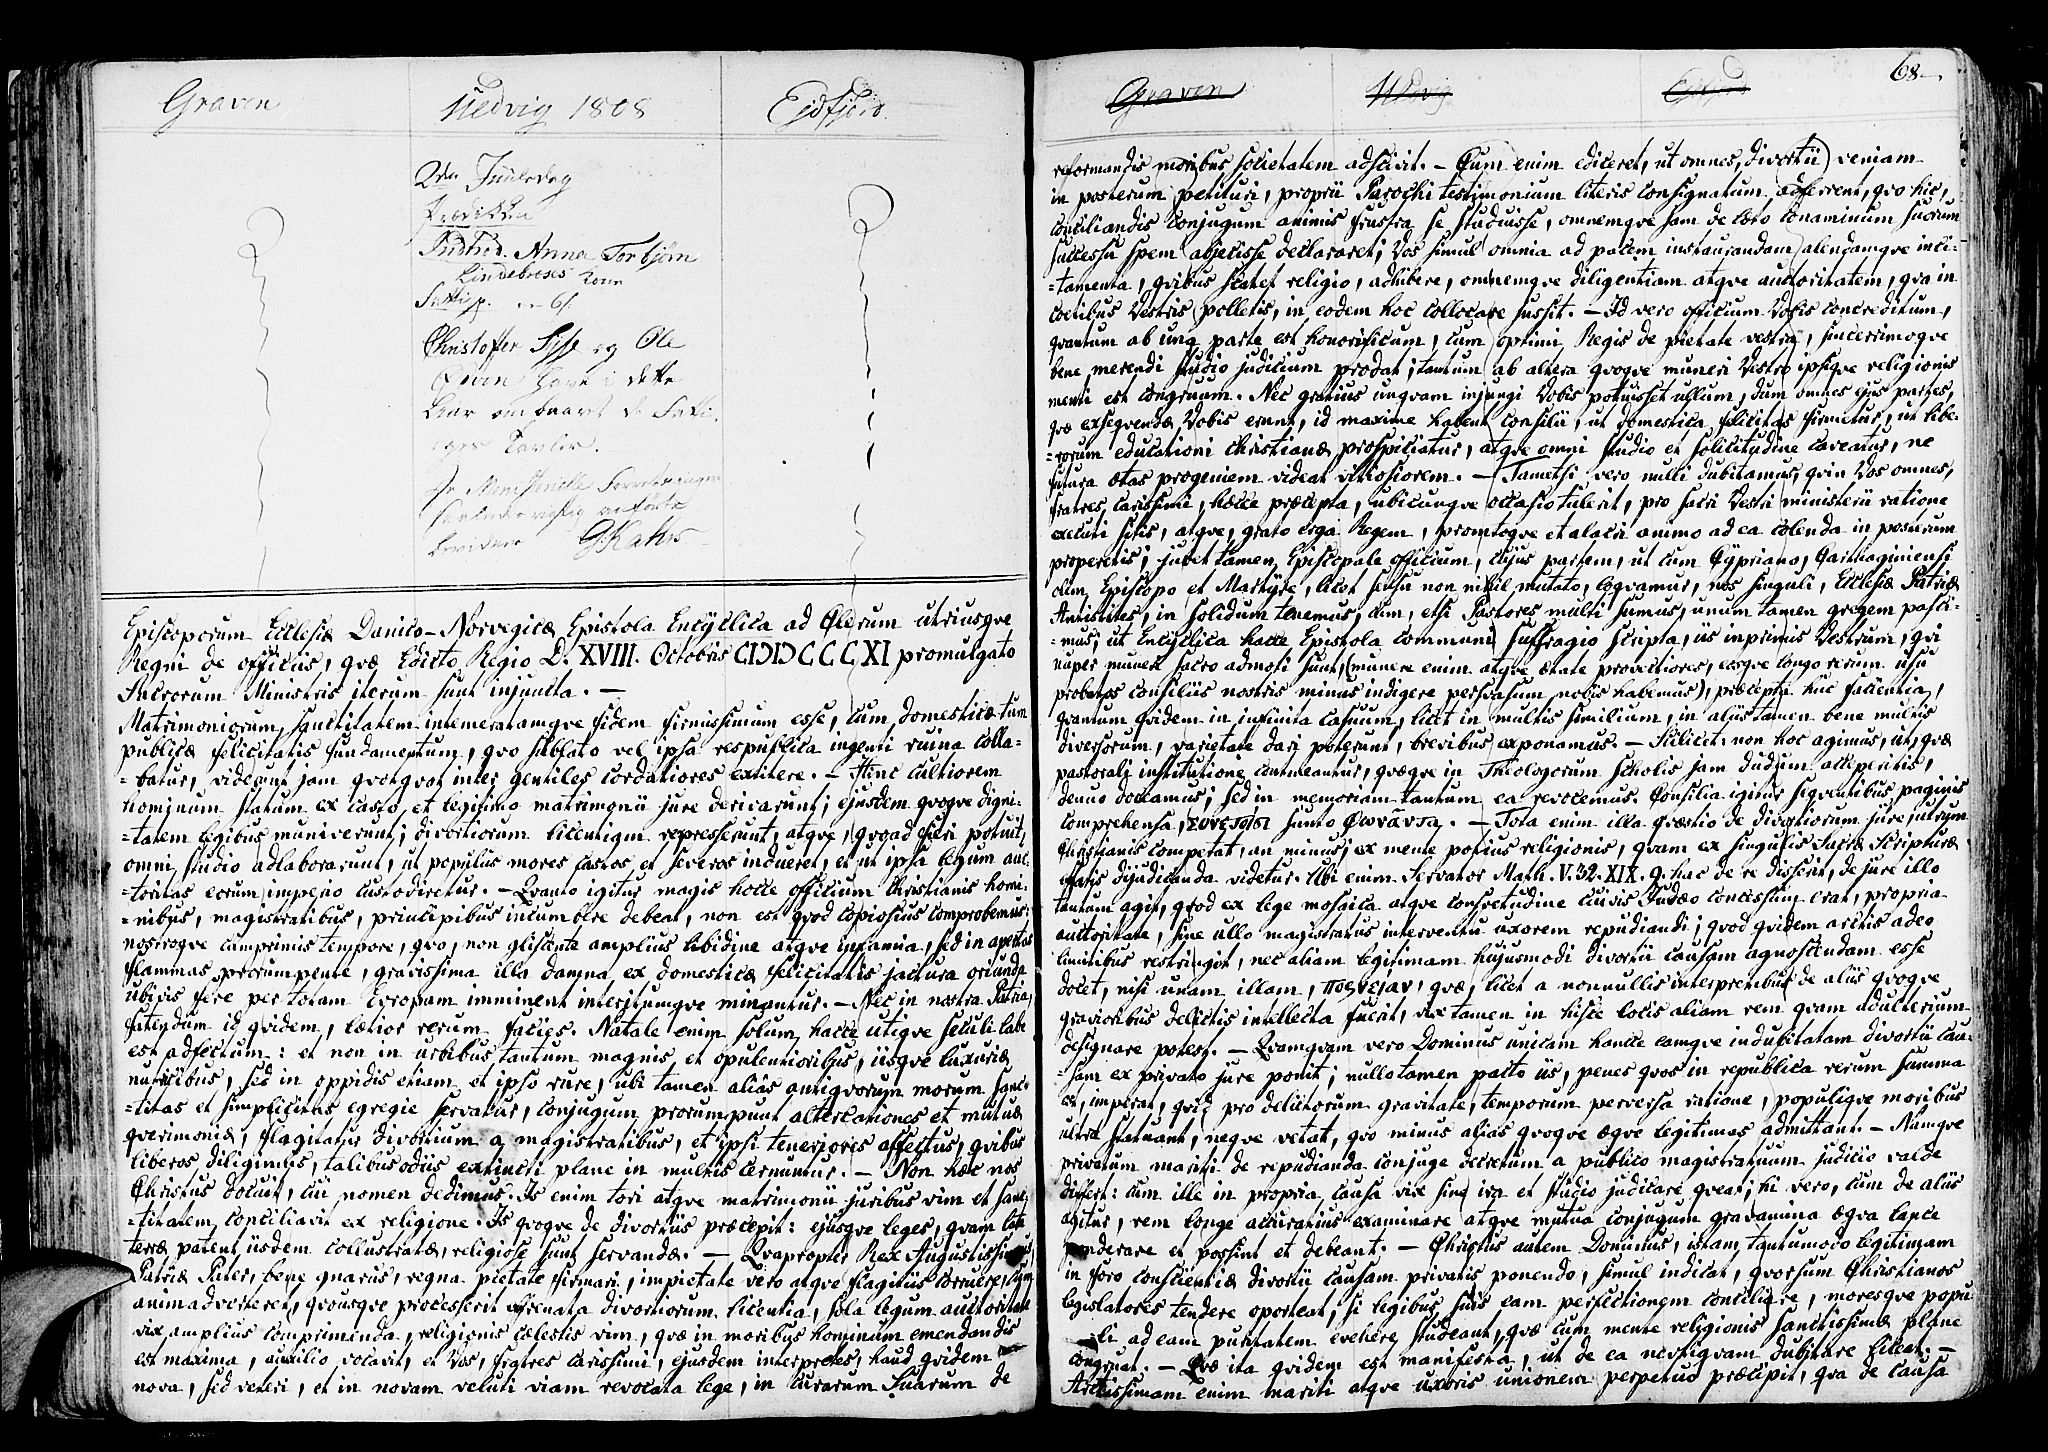 Graven
Ulvig 1808
Eidfjord.
2den Juuledag
Prædiken
Introd. Anna Torbjørn
Lindebrekes Kone
Christoffer Sysse og Ole
Qvern have i dette
Aar ombaaret de Fatti-
ges Tavler.
G. Hahn
Episcoporum Ecclesiæ Danico-Norvegicæ Epistola Encyclica ad Clerum utriusqve
Regni de officiis, qvæ Edicto Regio D. XVIII. Octobris CIƆIƆCCCXI promulgato
Sacrorum Ministris iterum sunt injuncta. —
Matrimoniorum sanctitatem intemeratamqve fidem firmissimum esse, cum domesticæ tum
publicæ felicitatis fundamentum, qvo sublato vel ipsa respublica ingenti ruina colla-
-batur, viderunt jam qvotqvot inter gentiles cordatiores extitere. — Hinc cultiorem
hominum statum ex casto et legitimo matrimonii jure derivarunt; ejusdem qvoqve digni-
-tatem legibus muniverunt; divortiorum licentiam represserunt, atqve, qvoad fieri potuit,
omni studio adlaborarunt, ut populus mores castos et severos indueret, et ut ipsa legum auc-
-toritas eorum imperio custodiretur. — Qvanto igitur magis hocce officium Christianis homi-
-nibus, magistratibus, principibus incumbere debeat, non est qvod copiosius comprobemus:
nostroqve cumprimis tempore, qvo, non gliscente amplius libidine atqve infamia, sed in apertas
flammas prorumpente, gravissima illa damna ex domesticæ felicitatis jactura oriunda
ubivis fere per totam Evropam imminent interitumqve minantur. — Nec in nostra Patria,
fatendum id qvidem, lætior rerum facies. Natale enim solum hacce utiqve seculi labe
est adfectum: et non in urbibus tantum magnis et opulentioribus, iisqve luxuriæ
nutricibus, sed in oppidis etiam et ipso rure, ubi tamen alias antiqvorum morum sanc-
-titas et simplicitas egregie servatur, conjugum prorumpunt altercationes et mutuæ
qverimoniæ, flagitatur divortium a magistratibus, et ipsi teneriores affectus, qvibus
liberos diligimus, talibus odiis extincti plane in multis cernuntur. — Non hæc nos
Christus docuit, cui nomen dedimus. Is enim tori atqve matrimonii juribus vim et sanc-
-titatem conciliavit ex religione. Is qvoqve de divortiis præcepit: ejusqve leges, qvam late
terræ patent iisdem collustratæ, religiose sunt servandæ. — Qvapropter Rex Augustissimus,
Patriæ Pater, bene gnarus, regna pietate firmari, impietate vero atqve flagitiis corruere, cum
animadverteret, qvousqve processerit effrenata divortiorum licentia, sola legum auctoritate
vix amplius comprimenda, religionis cælestis vim, qvæ in moribus hominum emendandis
est maxima, auxilio vocavit, et Vos, fratres carissimi, ejusdem interpretes, haud qvidem
nova, sed veteri, et in novam veluti viam revocata lege, in curarum Suarum de
Graven
Ulvig
Eidfjord
68
reformandis moribus societatem adscivit. — Cum enim ediceret, ut omnes, divortii veniam
in posterum petituri, proprii Parochi testimonium literis consignatum adferrent, qvo hic,
conciliandis conjugum animis frustra se studuisse, omnemqve jam de cæto conaminum suorum
successu spem abjecisse declararet; Vos simul omnia ad pacem instaurandam alendamqve inci-
-tamenta, qvibus scatet religio, adhibere, omnemqve diligentiam atqve auctoritatem, qva in
coetibus Vestris polletis, in eodem hoc collocare jussit. — Id vero officium Vobis concreditum,
qvantum ab una parte est honorificum, cum optimi Regis de pietate vestra, sincerrimoqve
bene merendi studio judicium prodat; tantum ab altera qvoqve muneri Vestro ipsiqve religionis
menti est congruum. Nec gratius unqvam injungi Vobis potuisset ullum, dum omnes ejus partes,
qvæ exseqvendæ Vobis erunt, id maxime habent consilii, ut domestica felicitas firmetur, ut libe-
-rorum educationi christianæ prospiciatur, atqve omni studio et solicitudine caveatur, ne
futura ætas progeniem videat vitiosiorem. — Tametsi vero nulli dubitamus, qvin Vos omnes,
fratres carissimi, hæcce præcepta, ubicunqve occasio tulerit, pro sacri Vestri ministerii ratione
executi sitis, atqve, grato erga Regem, promtoqve et alacri animo ad ea colenda in posterum
properetis; jubet tamen Episcopale officium, cujus partem, ut cum Cypriano, Carthaginiensi
olim Episcopo et Martyre, licet sensu non nihil mutato, loqvamur, nos singuli, Ecclesiæ Patriæ
Antistites, in solidum tenemus, dum, etsi Pastores multi sumus, unum tamen gregem pasci-
-mus; ut Encyclica hacce Epistola communi suffragio scripta, iis inprimis Vestrum, qvi
nuper muneri sacro admoti sunt, (munere enim atqve ætate provectiores, eosqve longo rerum usu
probatos consiliis nostris minus indigere persvasum nobis habemus), præcepta huc facientia,
qvantum qvidem in infinita casuum, licet in multis similium, in aliis tamen bene multis
diversorum, varietate dari poterunt, brevibus exponamus. — Scilicet: non hoc agimus, ut, qvæ
pastorali institutione continentur, qvæqve in Theologorum scholis jam dudum accepistis,
denuo doceamus; sed in memoriam tantum ea revocemus. Consilia igitur seqventibus paginis
comprehensa, sunto Φωναντα. — Tota enim illa qvæstio de divortiorum jure, utrum
Christianis competat, an minus, ex mente potius religionis, qvam ex singulis Sacræ Scripturæ
dijudicanda videtur. Ubi enim Servator Math. V. 32. XIX. 9. hac de re disserit, de jure illo
tantum agit, qvod ex lege mosaica atqve consvetudine cuivis Judæo concessum erat, propria
auctoritate, sine ullo magistratus interventu uxorem repudiandi; qvod qvidem arctis adeo
limitibus restringit, nec aliam legitimam hujusmodi divortii causam agnoscendam esse
docet, nisi unam illam, πορνειαν, qvæ, licet a nonnullis interpretibus de aliis qvoqve
gravioribus delictis intellecta fuerit, vix tamen in hisce locis aliam rem qvam adulterium
designare potest. — Qvamqvam vero Dominus unicam hancce eamqve indubitatam divortii cau-
-sam ex privato jure ponit; nullo tamen pacto iis, penes qvos in republica rerum summa
est, imperat, qvid pro delictorum gravitate, temporum perversa ratione, populiqve moribus
ultra statuant, neqve vetat, qvo minus alias qvoqve æqve legitimas admittant. — Namqve
privatum mariti de repudianda conjuge decretum a publico magistratuum judicio valde
differt: cum ille in propria causa vix sine ira et studio judicare qveat; hi vero, cum de aliis
agitur, rem longe accuratius examinare atqve mutua conjugum gravamina æqva lance
ponderare et possint et debeant. — Christus autem Dominus, istam tantummodo legitimam
in foro conscientiæ divortii causam privatis ponendo, simul indicat, qvorsum Christianos
legislatores tendere oporteat, si legibus suis eam perfectionem conciliare, moresqve popu
-li ad eam puritatem evehere studeant, qvæ cum mente religionis sanctissimæ plane
congruat. — Qvæ ita qvidem est manifesta, ut de ea neutiqvam dubitare liceat. —
Arctissimam enim mariti atqve uxoris unionem perpetuo præcipit, qva de causa